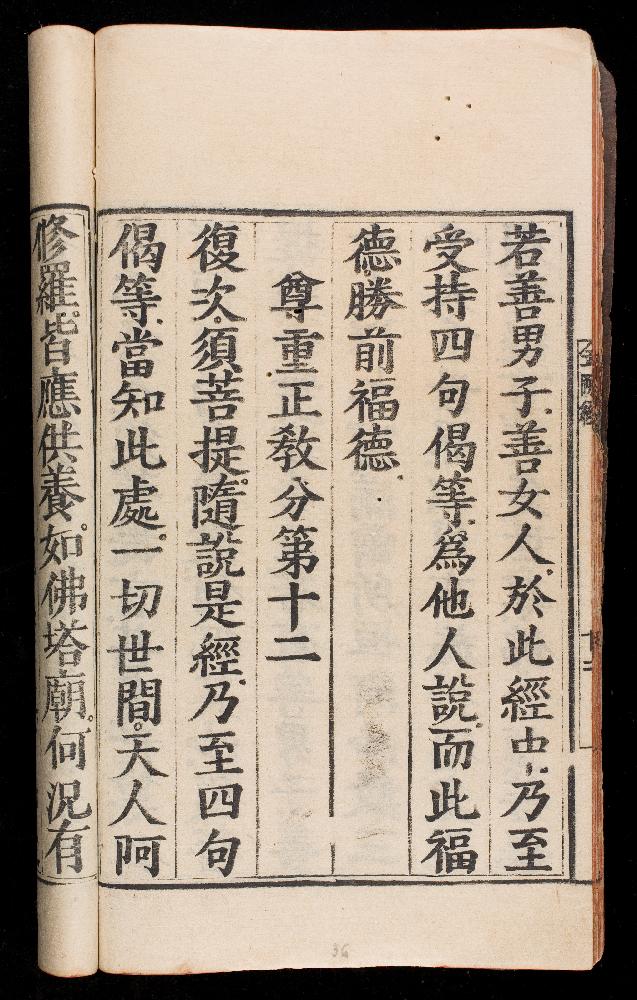 若善男子善女人於此經中乃至
受持四句偈等爲他人說而此福
德勝前福德
尊重正教分第十二
復次須菩提隨說是經乃至四句
偈等當知此處一切世間天人阿
修羅皆應供養如佛塔廟何況有
金剛經
36